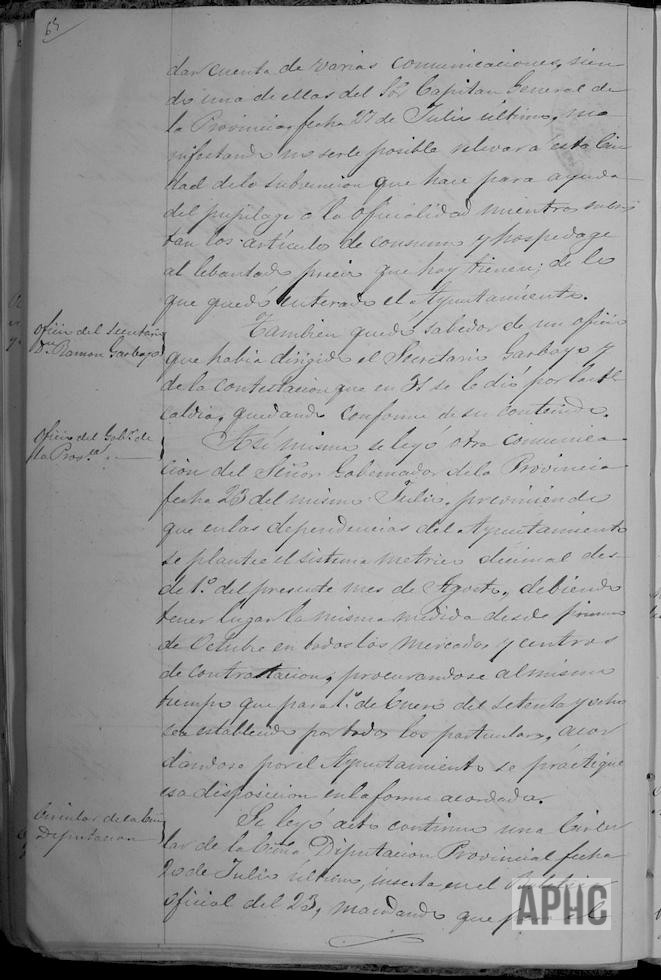 65
dar cuenta de varias comunicaciones, sien-
do una de ellas del Sor Capitan General de
la Provincia, fecha 27 de Julio último, ma-
nifestando no serle posible relevar a esta Ciu-
dad de la subvencion que hace para ayuda
del pupilage á la oficialidad mientras subsis-
tan los artículos de consumo y hospedage
al lebantado precio que hoy tienen; de lo
que quedó enterado el Ayuntamiento.
Oficio del Secretario
Dn Ramon Garbayo
Tambien quedó sabedor de un oficio
que habia dirigido el Secretario Garbayo y
de la contestacion que en 31 se le dió por la Al-
caldia, quedando conforme de su contenido.
Oficio del Gobr. de
la Prova.
Asi mismo se leyó otra comunica-
cion del Señor Gobernador de la Provincia
fecha 23 del mismo Julio, previniendo
que en las dependencias del Ayuntamiento
se plantee el sistema metrico decimal des-
de 1o. del presente mes de Agosto, debiendo
tener lugar la misma medida desde primero
de Octubre en todos los mercados y centros
de contratacion, procurandose al mismo
tiempo que para 1o. de Enero del setenta y ocho
sea establecido por todos los particulares, acor-
dandose por el Ayuntamiento se practique
esa disposicion en la forma acordada.
Circular de la
Diputacion
Se leyó acto continuo una Circu-
lar de la Diputacion Provincial fecha
20 de Julio último, inserta en el Boletin
oficial del 23, mandando que para el
APHC